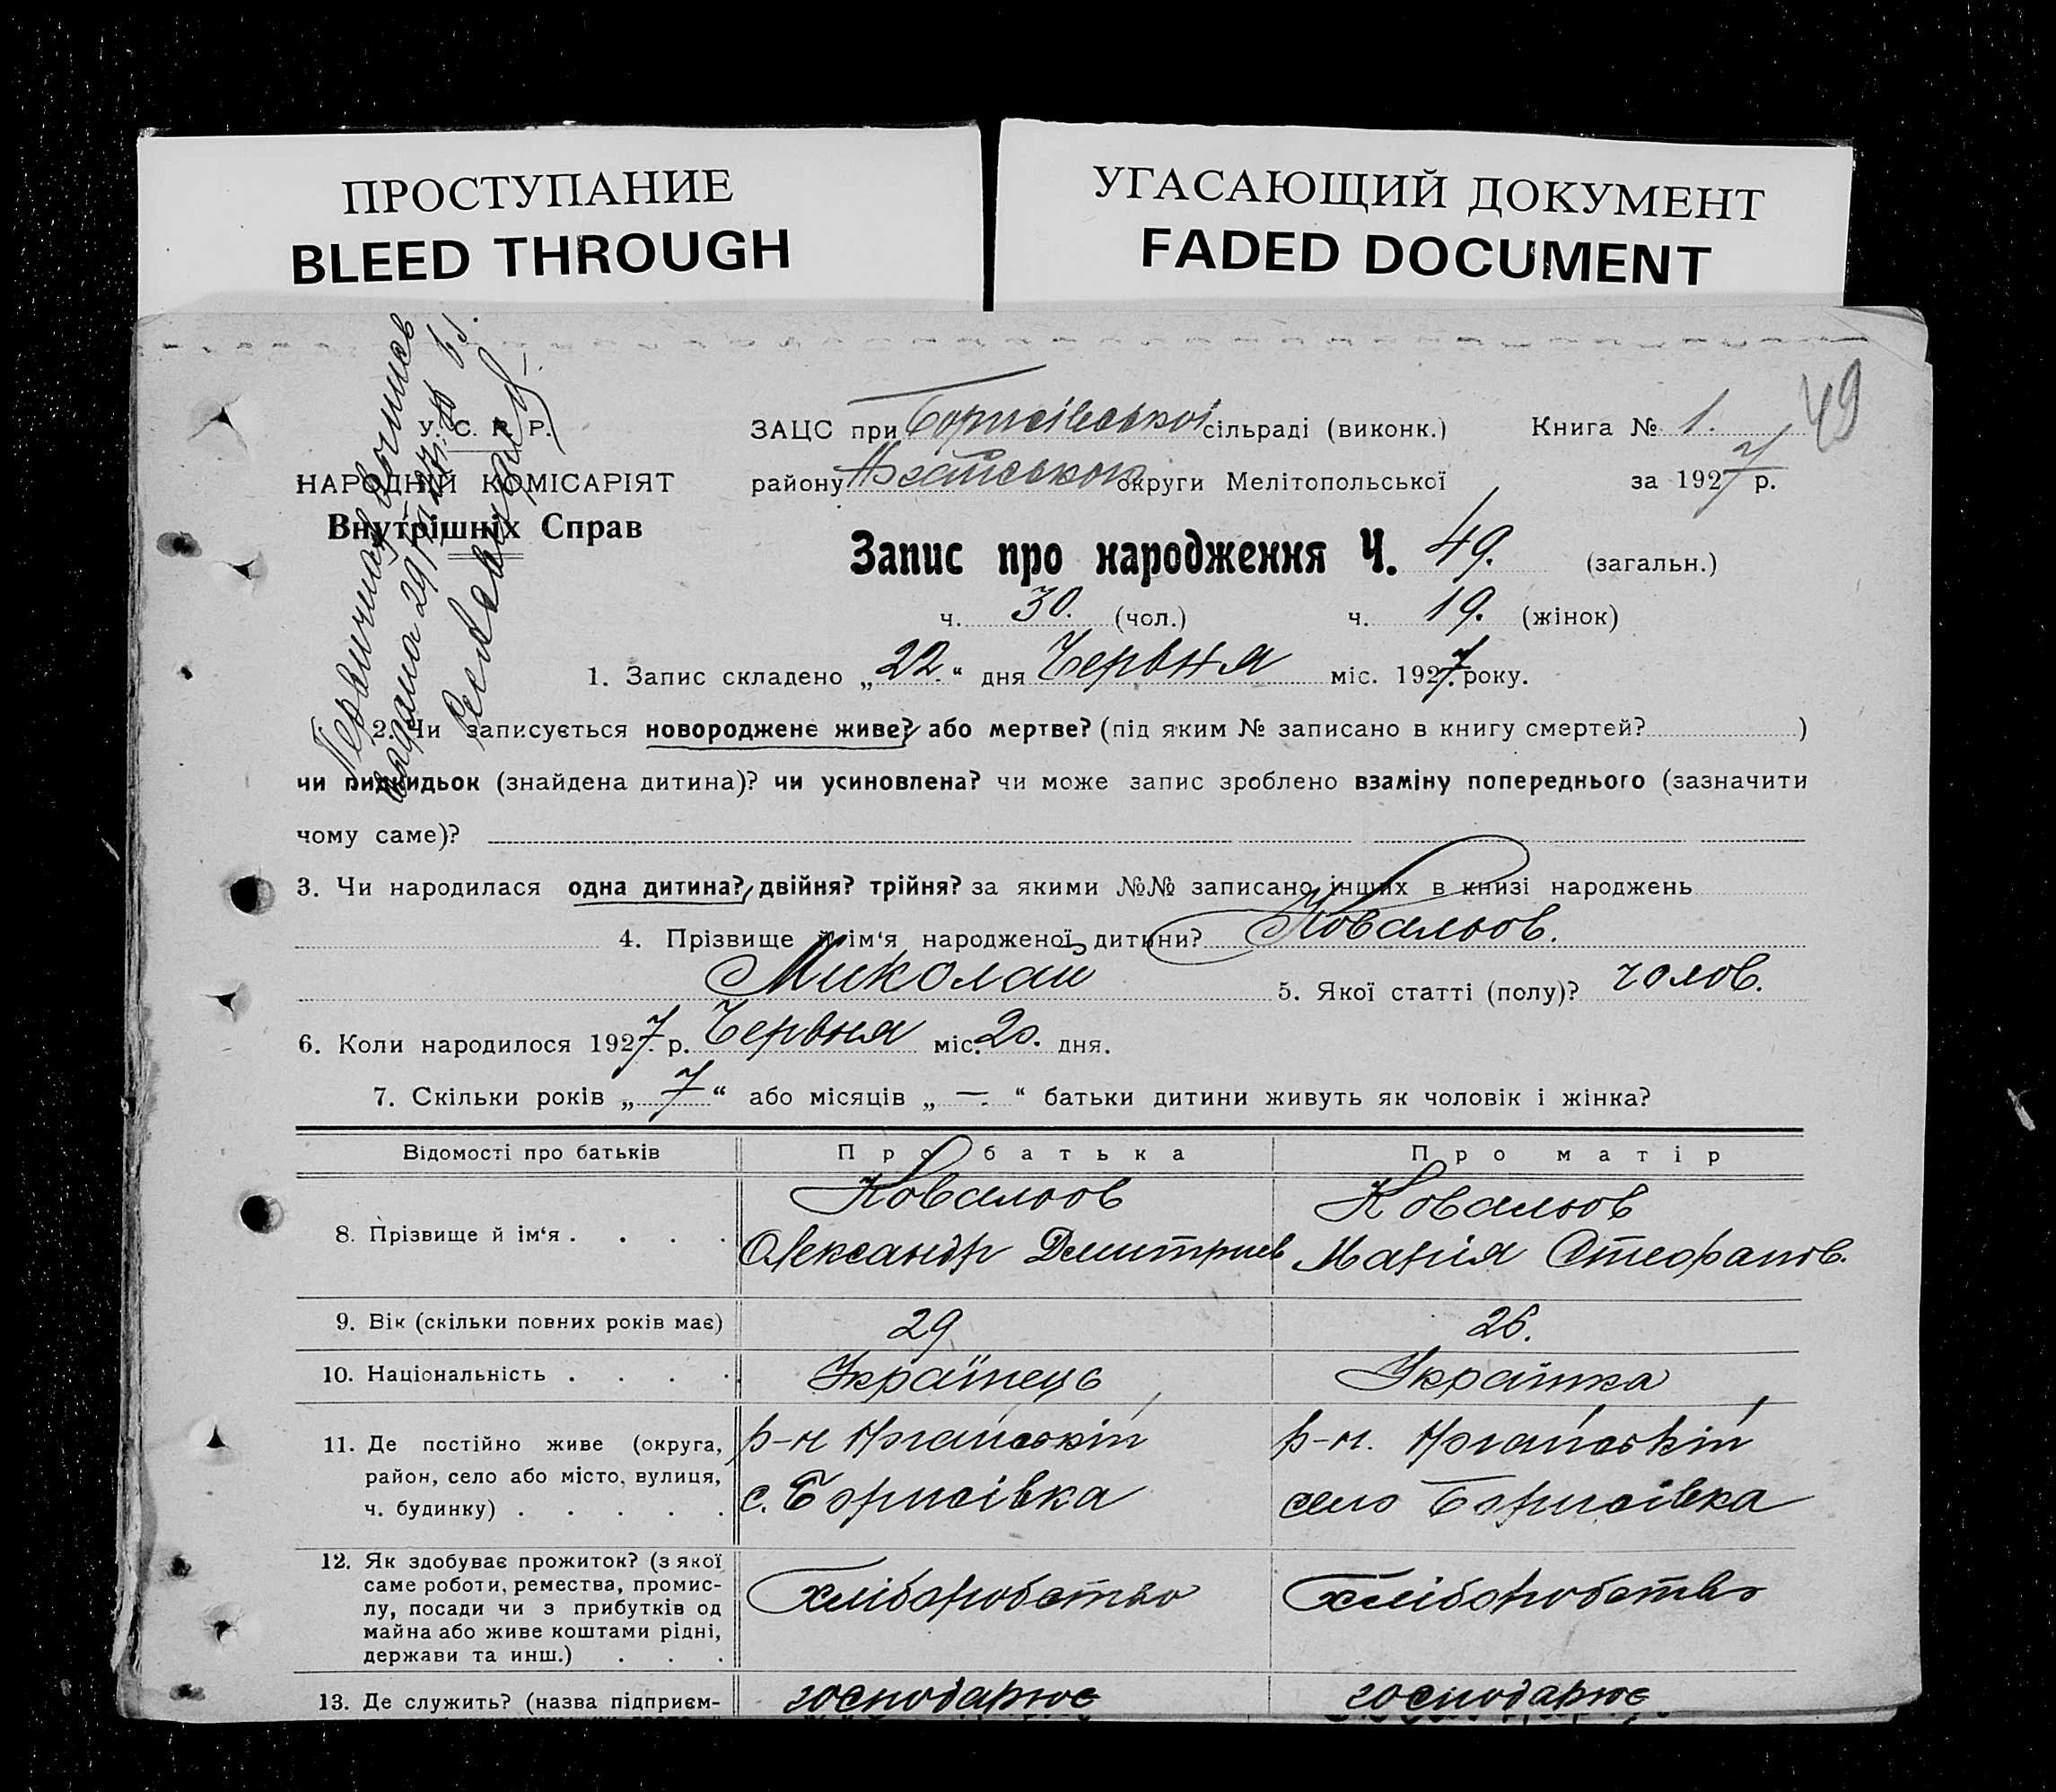 ПРОСТУПАНИЕ
BLEED THROUGH
УГАСАЮЩИЙ ДОКУМЕНТ
FADED DOCUMENT
49
У. С. Р. Р.
НАРОДНІЙ КОМІСАРІЯТ
Внутрішніх Справ
ЗАЦС при Борисівської сільраді (виконк.) Книга № 1.
району округи Мелітопольської за 1927 р.
Запис про народження Ч. 49. (загальн.)
ч. 30. (чол.) ч. 19. (жінок)
1. Запис складено „22.“ дня Червня міс. 1927 року.
2. Чи записується новороджене живе? або мертве? (під яким № записано в книгу смертей? )
чи підкидьок (знайдена дитина)? чи усиновлена? чи може запис зроблено взаміну попереднього (зазначити
чому саме)?
3. Чи народилася одна дитина? двійня? трійня? за якими №№ записано інших в книзі народжень
4. Прізвище й ім‘я народженої дитини? Ковальов.
Миколай 5. Якої статті (полу)? чолов.
6. Коли народилося 1927 р. Червня міс. 20. дня.
7. Скільки років „7“ або місяців „—“ батьки дитини живуть як чоловік і жінка?
Відомості про батьків Про батька Про матір
8. Прізвище й ім‘я . . . . Ковальов Ковальов
Олександр Дмитриев Марія Стефанов.
9. Вік (скільки повних років має) 29 26.
10. Національність . . . . Українець Українка
11. Де постійно живе (округа, р-н Ногайський р-н. Ногайський
район, село або місто, вулиця,
ч. будинку) . . . . . с. Борисівка село Борисівка
12. Як здобуває прожиток? (з якої
саме роботи, ремества, промис-
лу, посади чи з прибутків од хліборобство хліборобство
майна або живе коштами рідні,
держави та инш.) . . .
13. Де служить? (назва підприєм- господарює господарює